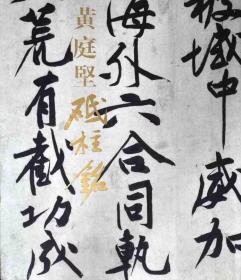 被域中威加
海外六合同軌
黃庭堅砥柱銘
荒有截功成